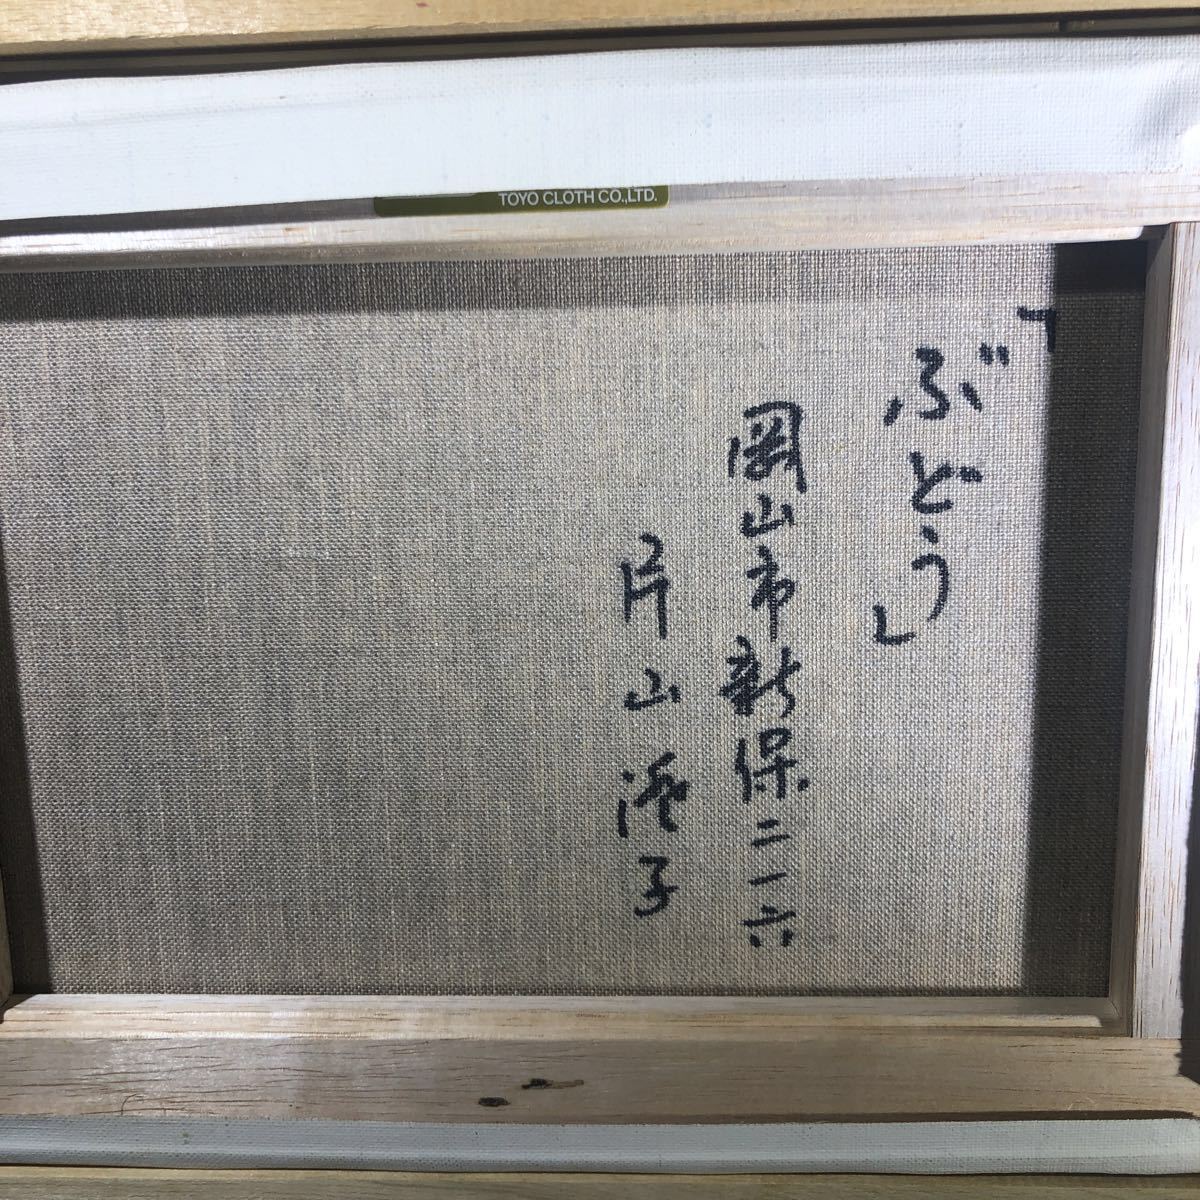 TOYO CLOTH CO.,LTD.
「ぶどう」
岡山市新保二一六
片山
子